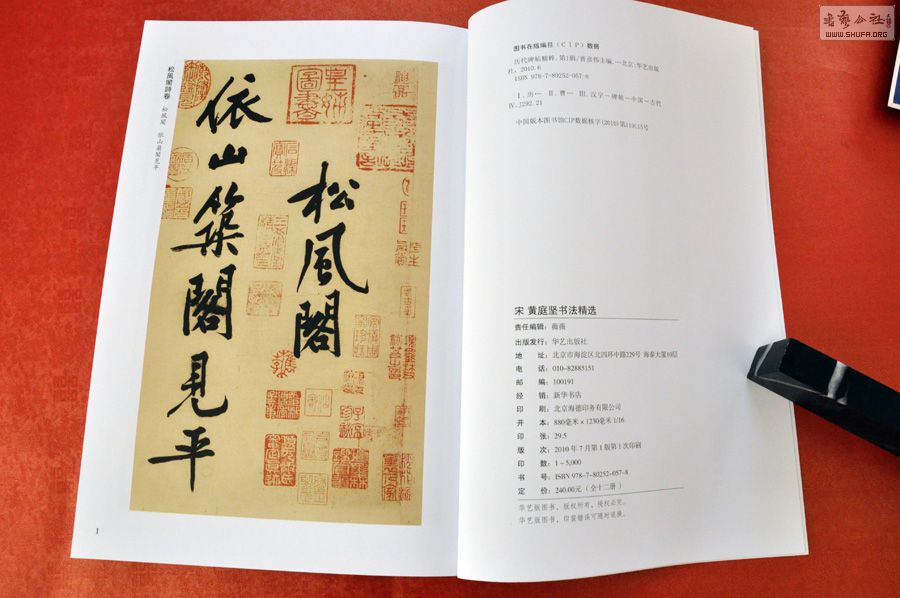 松風閣詩卷 松風閣 依山築閣見平
松風閣
依山築閣見平
1
图书在版编目(CIP)数据
历代碑帖精粹. 第1辑/曹彦伟主编. —北京:华艺出版
社, 2010.6
ISBN 978-7-80252-057-8
Ⅰ.历… Ⅱ.曹… Ⅲ.汉字—碑帖—中国—古代
Ⅳ.J292.21
中国版本图书馆CIP数据核字(2010)第119115号
宋 黄庭坚书法精选
责任编辑:薇薇
出版发行:华艺出版社
地 址:北京市海淀区北四环中路229号 海泰大厦10层
电 话:010-82885151
邮 编:100191
经 销:新华书店
印 刷:北京海德印务有限公司
开 本:880毫米×1230毫米 1/16
印 张:29.5
版 次:2010年7月第1版第1次印刷
印 数:1-5,000
书 号:ISBN 978-7-80252-057-8
定 价:240.00元(全十二册)
华艺版图书,版权所有,侵权必究。
华艺版图书,印装错误可随时退换。
WWW.SHUFA.ORG